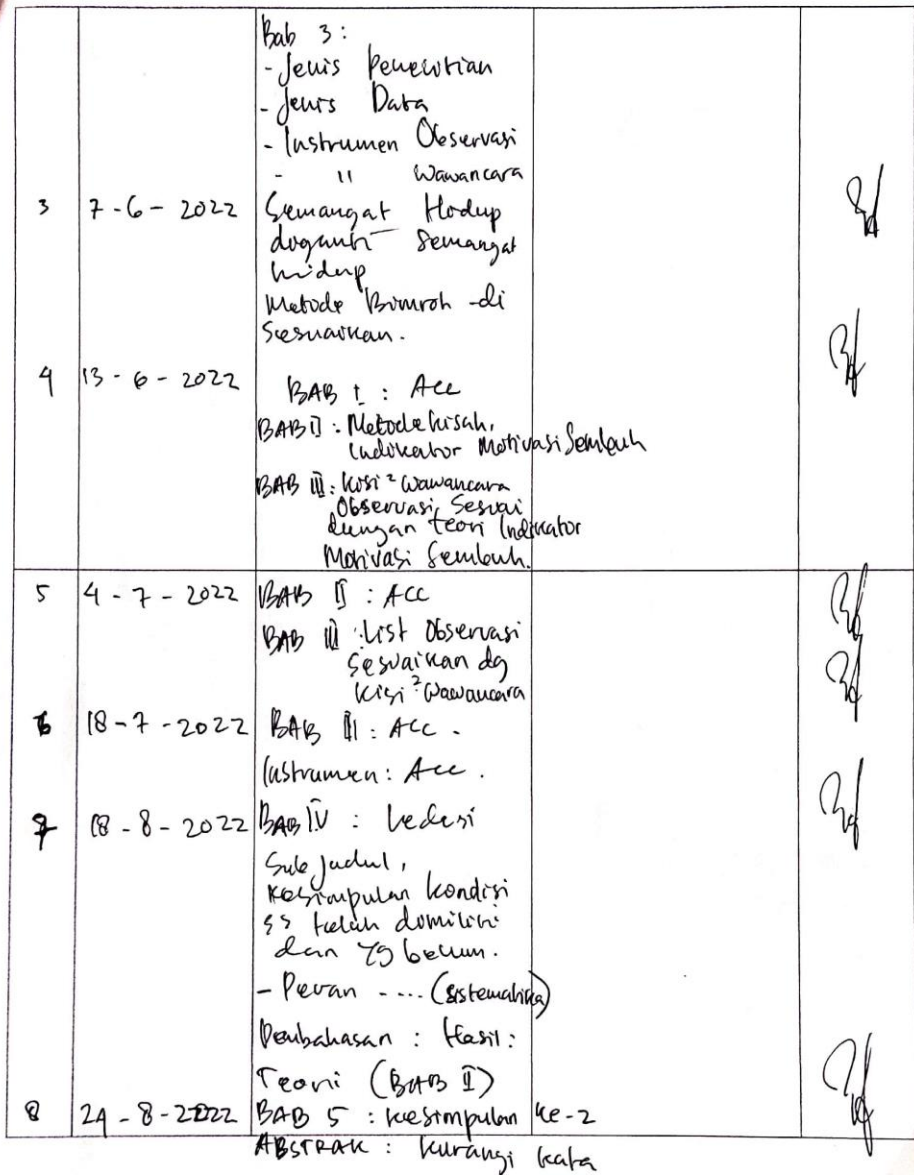 Bab 3:
- Jenis Penelitian
- Jenis Data
- Instrumen Observasi
- " Wawancara
3 7-6-2022 Semangat Hodup
diganti semangat
hidup
Metode Bimroh di
sesuaikan.
4 13-6-2022 BAB I : Acc
BAB II : Metode kisah,
Indikator Motivasi Sembuh
BAB III : Kisi² Wawancara
Observasi, Sesuai
dengan teori Indikator
Motivasi Sembuh.
5 4-7-2022 BAB II : ACC
BAB III : List Observasi
Sesuaikan dg
kisi² Wawancara
6 18-7-2022 BAB III : Acc.
Instrumen : Acc.
7 18-8-2022 BAB IV :
Sub judul,
kesimpulan kondisi
telah dimiliki
dan yg belum.
- Peran .... (sistematika)
Pembahasan : Hasil :
Teori (BAB II)
8 24-8-2022 BAB 5 : kesimpulan ke-2
ABSTRAK : kurangi kata